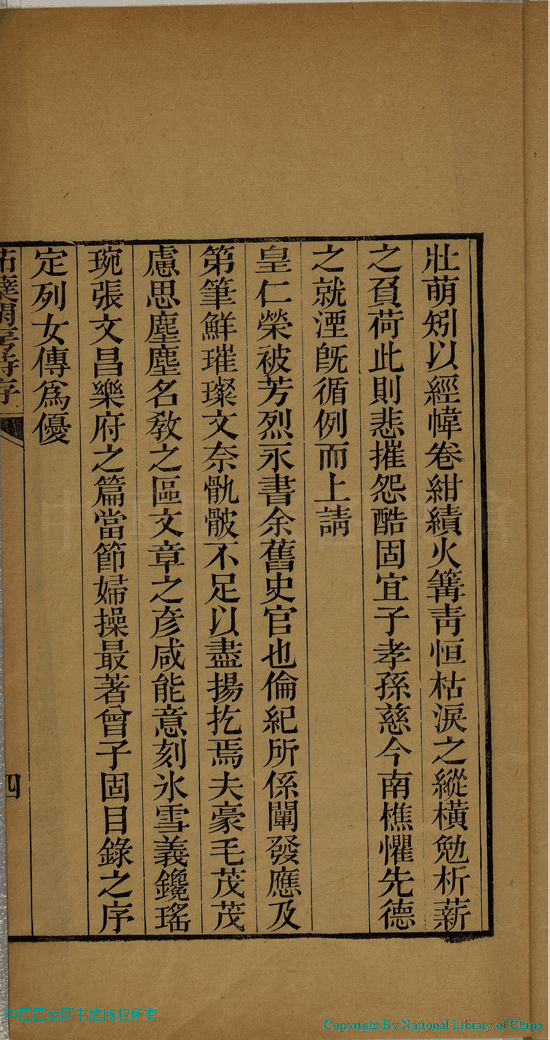 壯萌矧以經幃卷紺績火篝靑恒枯淚之縱橫勉析薪
之負荷此則悲摧怨酷固宜子孝孫慈今南樵懼先德
之就湮旣循例而上請
皇仁榮被芳烈永書余舊史官也倫紀所係闡發應及
第筆鮮璀璨文奈骩骳不足以盡揚扢焉夫豪毛茂茂
慮思塵塵名敎之區文章之彥咸能意刻氷雪義鑱瑤
琬張文昌樂府之篇當節婦操最著曾子固目錄之序
定列女傳爲優
四
中国国家图书馆版权所有
Copyright By National Library of China